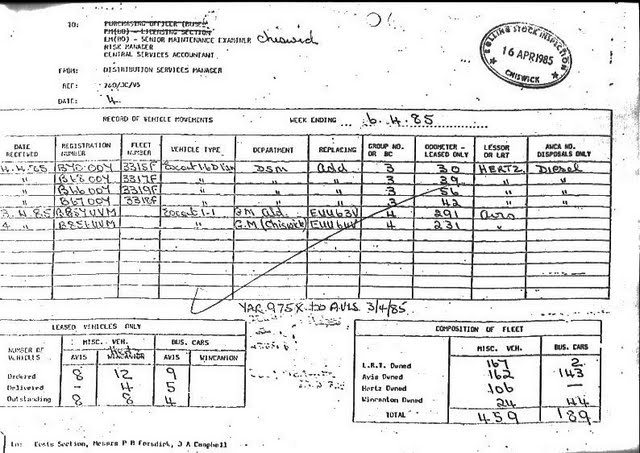 TO: PURCHASING OFFICER (BUSES)
EM(RO) - LICENSING SECTION
EM(RO) - SENIOR MAINTENANCE EXAMINER Chiswick
RISK MANAGER
CENTRAL SERVICES ACCOUNTANT.
FROM: DISTRIBUTION SERVICES MANAGER
REF: 760/JC/VS
DATE: 4
ROLLING STOCK INSPECTION
16 APR 1985
CHISWICK
RECORD OF VEHICLE MOVEMENTS WEEK ENDING 6.4.85
DATE RECEIVED REGISTRATION NUMBER FLEET NUMBER VEHICLE TYPE DEPARTMENT REPLACING GROUP NO. OR BC ODOMETER - LEASED ONLY LESSOR OR LRT AWCA NO. DISPOSALS ONLY
4.4.85 3315F DSM Add 3 30 HERTZ Diesel
" " B68 00Y 3317F " " " 3 39 " "
" " B66 00Y 3319F " " " 3 56 " "
" " B67 00Y 3318F " " " 3 42 " "
3.4.85 Escort 1-1 Add. EUU63V 4 291 Avis
4 " G.M (Chiswick) EUU64V 4 231 "
YAR 975X to AVIS 3/4/85
LEASED VEHICLES ONLY
MISC. VEH. BUS. CARS
NUMBER OF VEHICLES AVIS AVIS WINCANTON
Ordered 8 12 9
Delivered - 4 5
Outstanding 8 8 4
COMPOSITION OF FLEET
MISC. VEH. BUS. CARS
L.R.T. Owned 167 2
Avis Owned 162 143
Hertz Owned 106 —
Wincanton Owned 24 44
TOTAL 459 189
To: Costs Section, Messrs P R Forsdick, J A Campbell